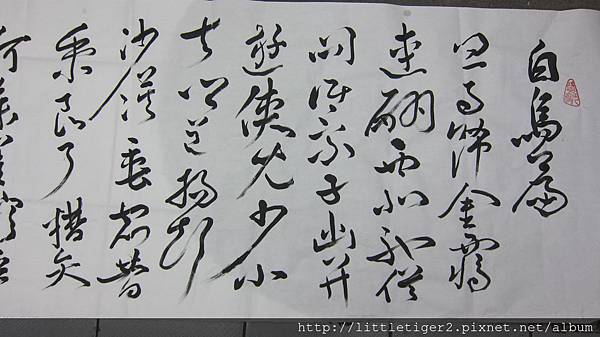 白馬篇
白馬飾金羈
連翩西北馳借
問誰家子幽并
遊俠兒少小
去鄉邑揚聲
沙漠垂宿昔
秉良弓楛矢
何參差
http://littletiger2.pixnet.net/album